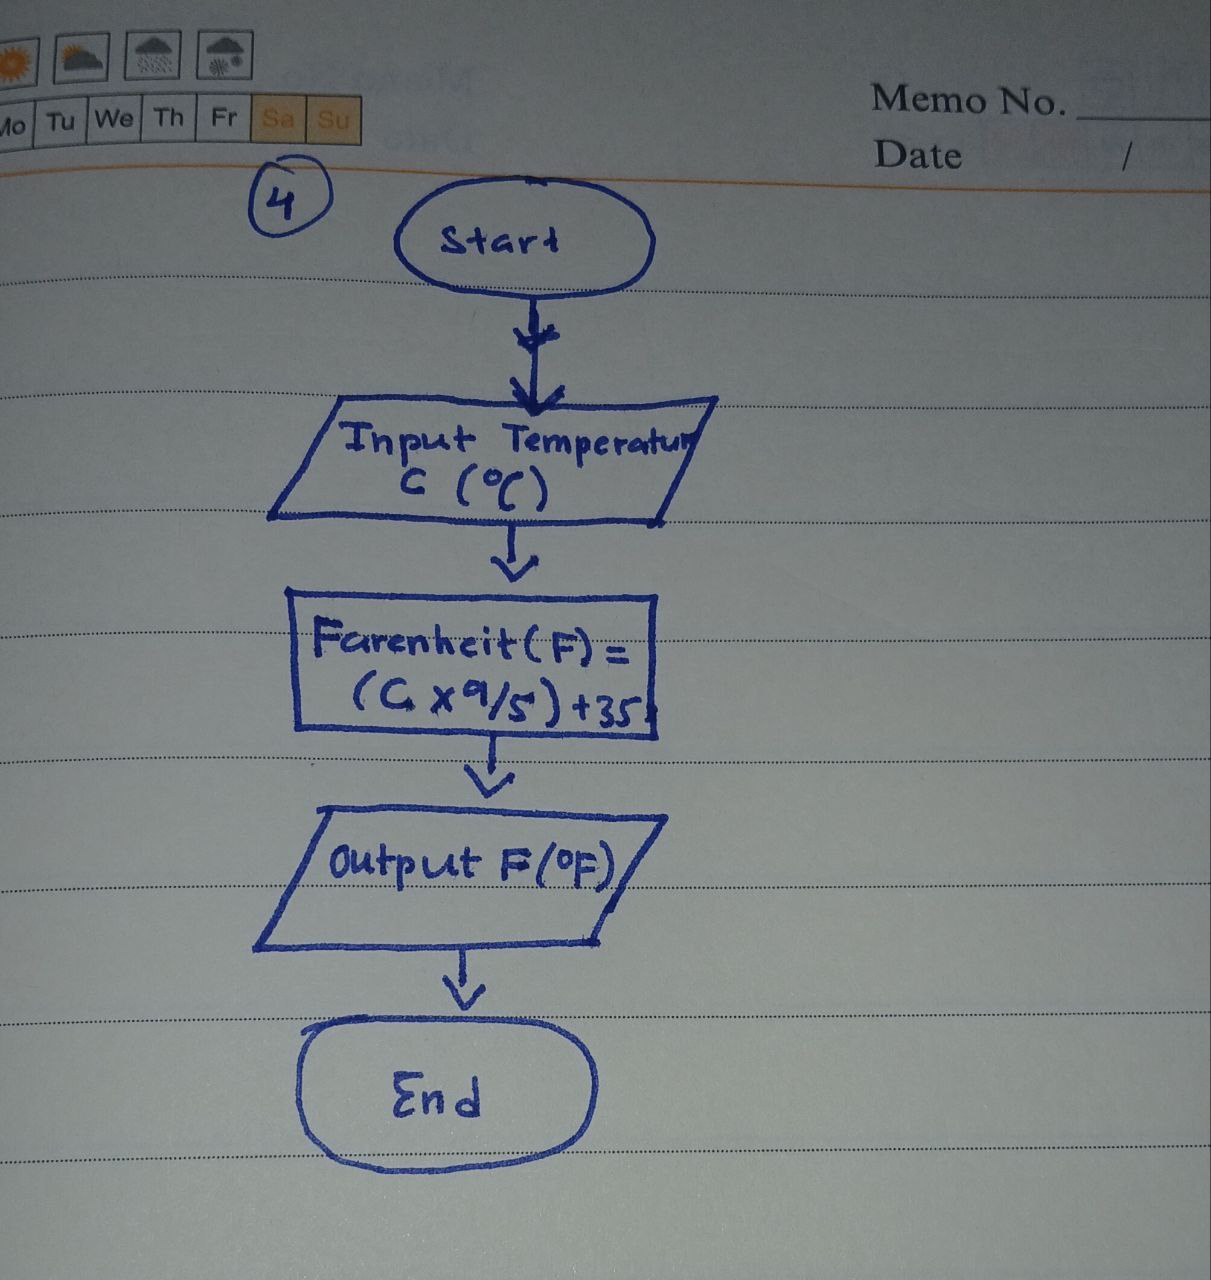 Mo Tu We Th Fr Sa Su
Memo No.
Date /
4
Start
Input Temperatur
C (°C)
Farenheit (F) =
(C x 9/5) + 35
Output F (°F)
End